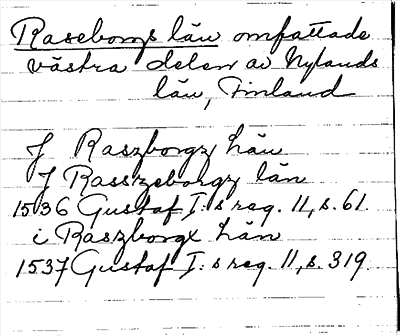 Raseborgs län omfattade
västra delen av Nylands
län, Finland
J Raszborgz hän
J Rasszeborgz län
1536 Gustaf I:s reg. 11, s. 61.
i Raszborgx hän
1537 Gustaf I:s reg. 11, s. 319.